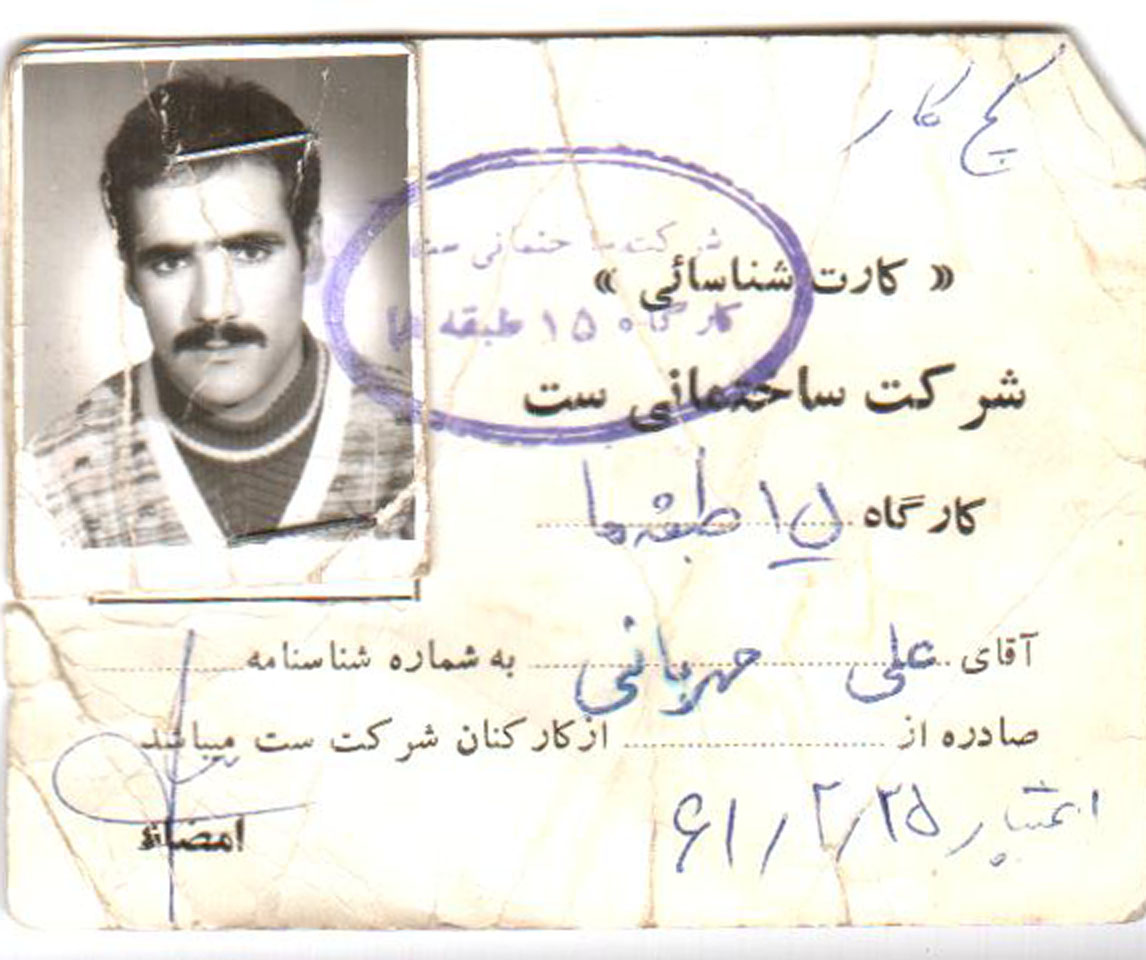 گچ کار
شرکت ساختمانی ست
کارگاه ۱۵ طبقه ها
« کارت شناسائی »
شرکت ساختمانی ست
کارگاه ۱۵ طبقه ها
آقای علی مهربانی به شماره شناسنامه
صادره از از کارکنان شرکت ست میباشد
اعتبار ۶۱/۲/۲۵
امضاء